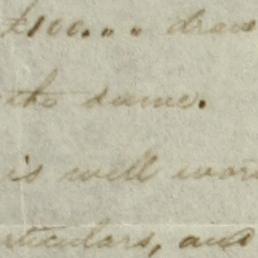 £100. " . draw
the same.
is well wor
articulars, and